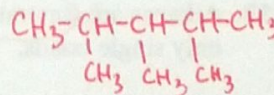 CH₃-CH-CH-CH-CH₃
CH₃ CH₃ CH₃